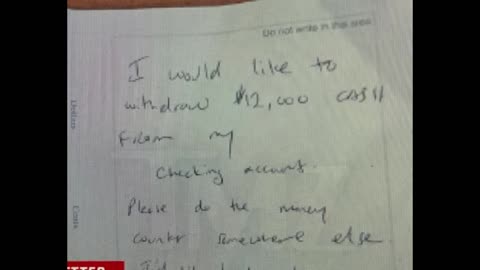 Do not write in this area
I would like to
withdraw $12,000 CASH
From my
checking account.
Please do the money
counter somewhere else
I'd
Dollars
Cents